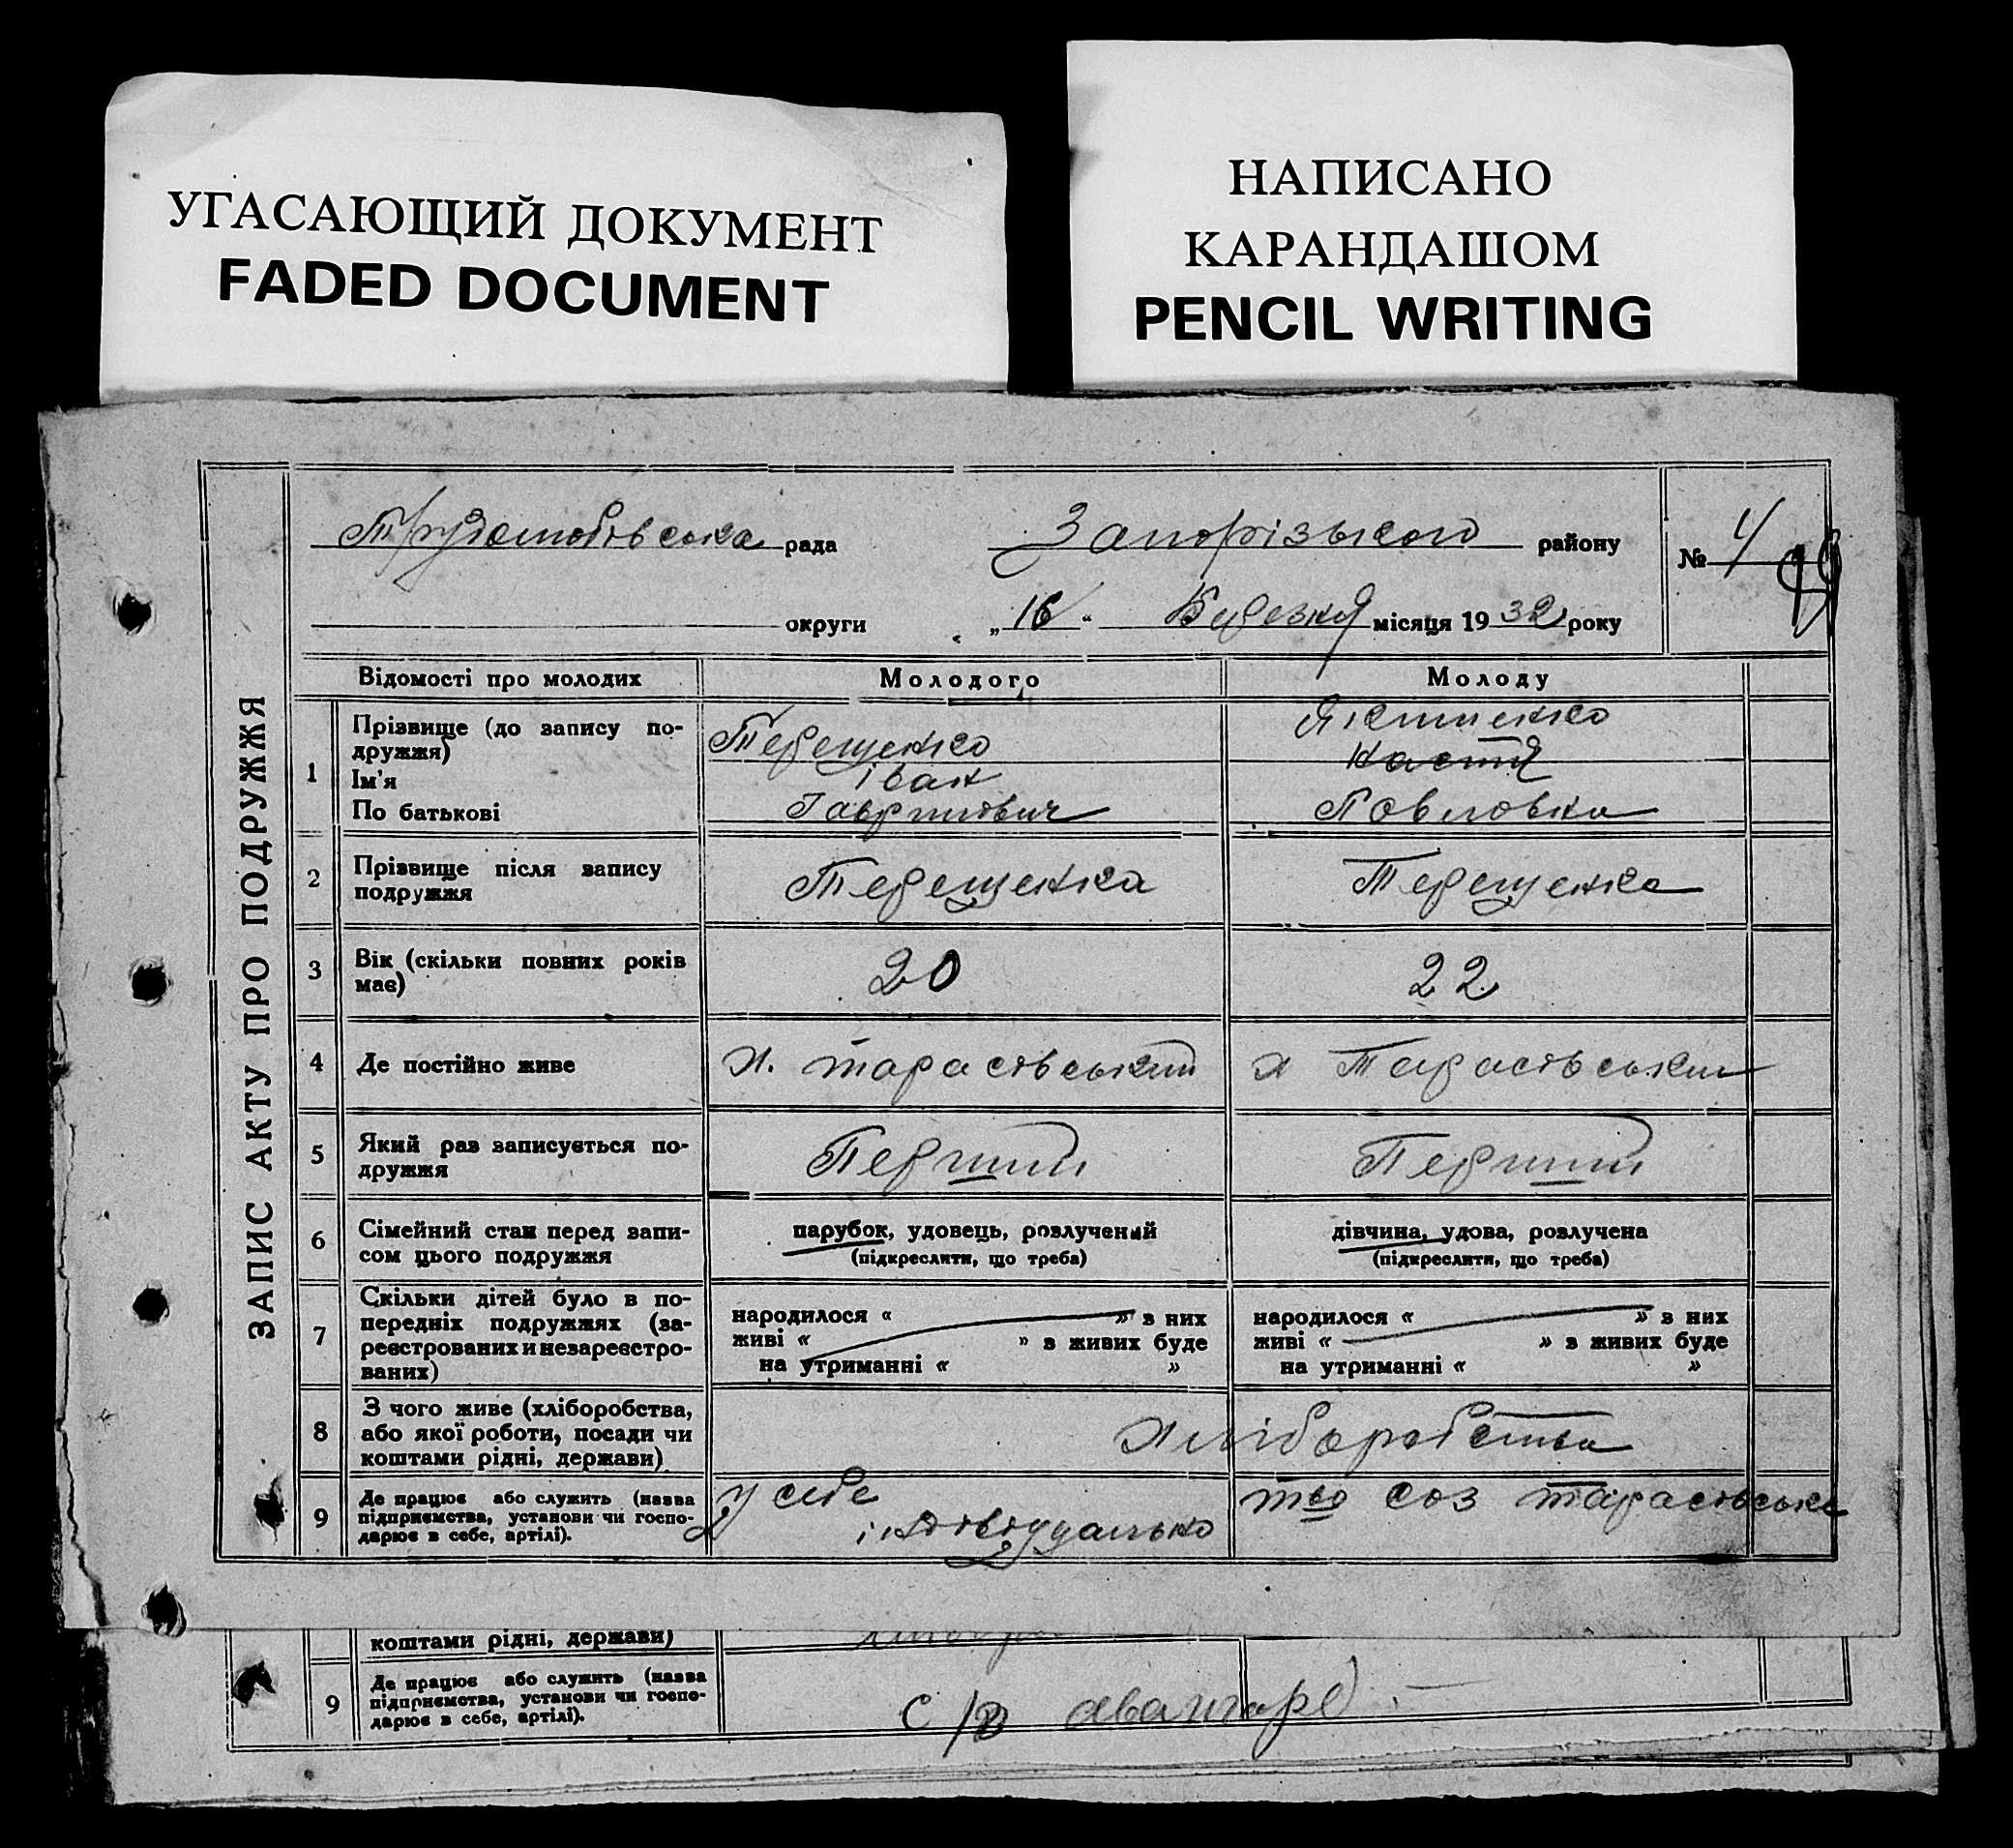 УГАСАЮЩИЙ ДОКУМЕНТ
FADED DOCUMENT
НАПИСАНО
КАРАНДАШОМ
PENCIL WRITING
ЗАПИС АКТУ ПРО ПОДРУЖЖЯ
рада Запорізького району № 4
округи „16" Березня місяця 1932 року
Відомості про молодих Молодого Молоду
1 Прізвище (до запису подружжя) Терещенко
Ім'я Іван Настя
По батькові Гаврилович Павловна
2 Прізвище після запису подружжя Терещенка Терещенка
3 Вік (скільки повних років має) 20 22
4 Де постійно живе х. Тарасівський х Тарасівський
5 Який раз записується подружжя Перший Перший
6 Сімейний стан перед записом цього подружжя парубок, удовець, розлучений дівчина, удова, розлучена
(підкреслити, що треба) (підкреслити, що треба)
7 Скільки дітей було в попередніх подружжях (зареєстрованих и незареєстрованих) народилося « » з них народилося « » з них
живі « » з живих буде живі « » з живих буде
на утриманні « » на утриманні « »
8 З чого живе (хліборобства, або якої роботи, посади чи коштами рідні, держави) Хліборобства
9 Де працює або служить (назва підприємства, установи чи господарює в себе, артілі). у себе тво соз
коштами рідні, держави)
9 Де працює або служить (назва підприємства, установи чи господарює в себе, артілі). авангард